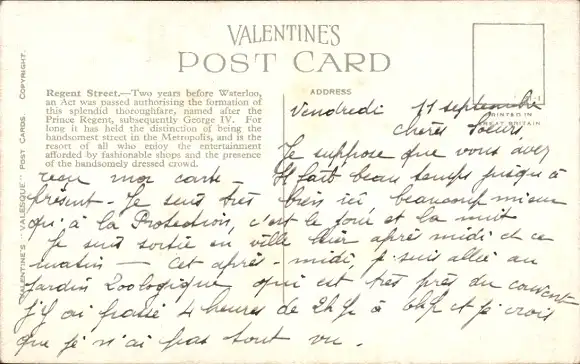 VALENTINE'S
POST CARD
Regent Street.—Two years before Waterloo,
an Act was passed authorising the formation of
this splendid thoroughfare, named after the
Prince Regent, subsequently George IV. For
long it has held the distinction of being the
handsomest street in the Metropolis, and is the
resort of all who enjoy the entertainment
afforded by fashionable shops and the presence
of the handsomely dressed crowd.
VALENTINE'S "VALESQUE" POST CARDS. COPYRIGHT.
ADDRESS
PRINTED IN
GREAT BRITAIN
Vendredi 11 septembre
chères Soeurs,
Je suppose que vous avez
reçu ma carte - Il fait beau temps jusqu'à
présent - Je suis très bien ici beaucoup mieux
qu'à la Protection, c'est le jour et la nuit
Je suis sortie en ville hier après midi et ce
matin — Cet après-midi, je suis allée au
Jardin Zoologique qui est très près du couvent
j'y ai passé 4 heures de 2h½ à 6h½ et je crois
que je n'ai pas tout vu.